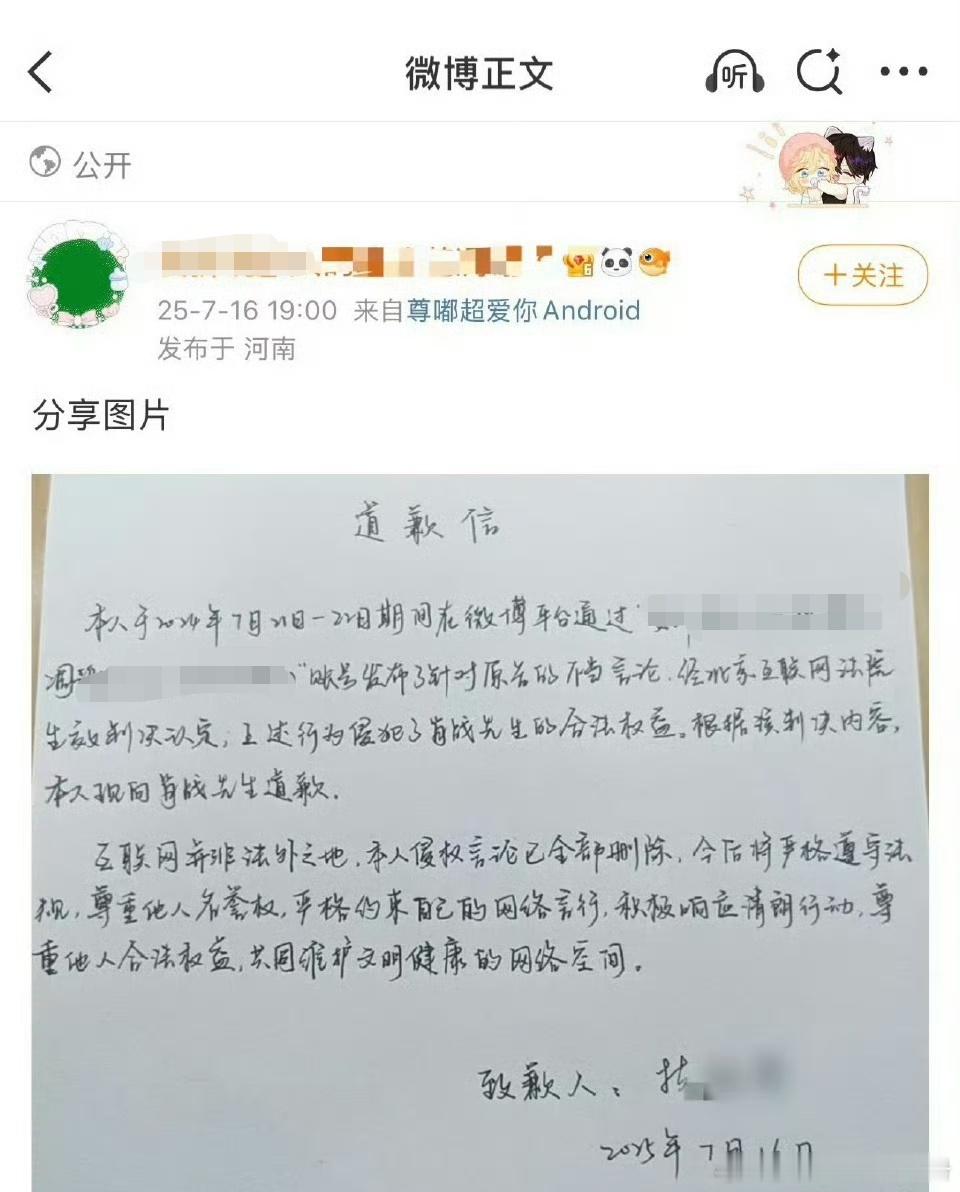 微博正文
听
公开
25-7-16 19:00 来自尊嘟超爱你Android
+关注
发布于 河南
分享图片
道歉信
本人于2024年7月21日-22日期间在微博平台通过"
"账号发布了针对原告的不当言论,经北京互联网法院
生效判决认定,上述行为侵犯了肖战先生的合法权益。根据该判决内容,
本人现向肖战先生道歉.
互联网并非法外之地,本人侵权言论已全部删除,今后将严格遵守法
规,尊重他人名誉权,严格约束自己的网络言行,积极响应清朗行动,尊
重他人合法权益,共同维护文明健康的网络空间。
致歉人:
2025年7月16日